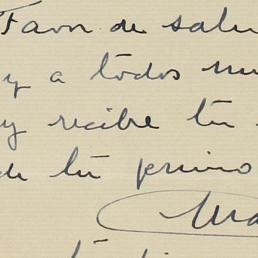 Favor de salu
y a todos mu
y recibe tu
de tu primo
Ma